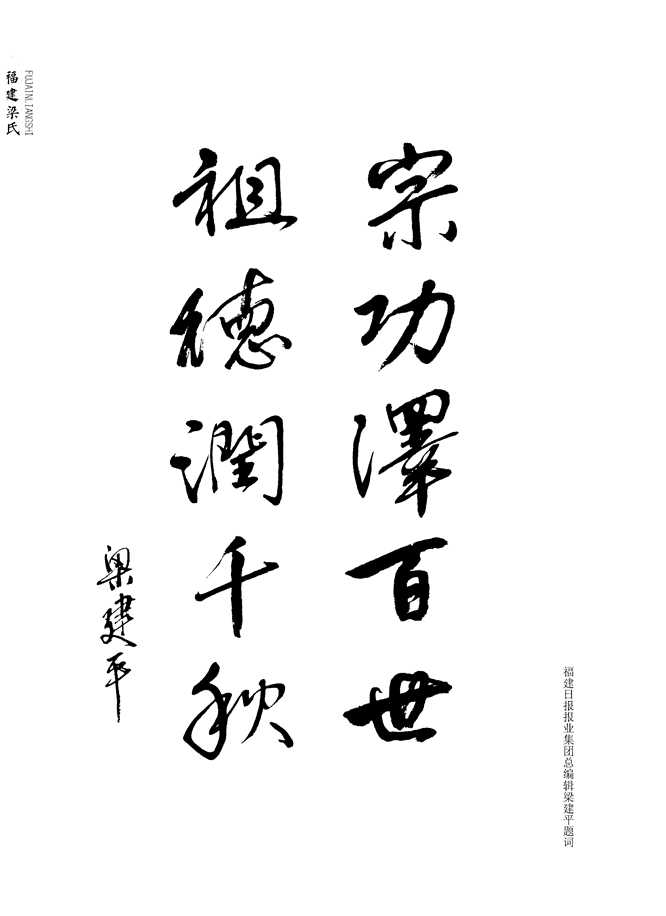 宗功澤百世
祖德潤千秋
梁建平
福建日报报业集团总编辑梁建平题词
福建梁氏
FUJAINLIANGSHI